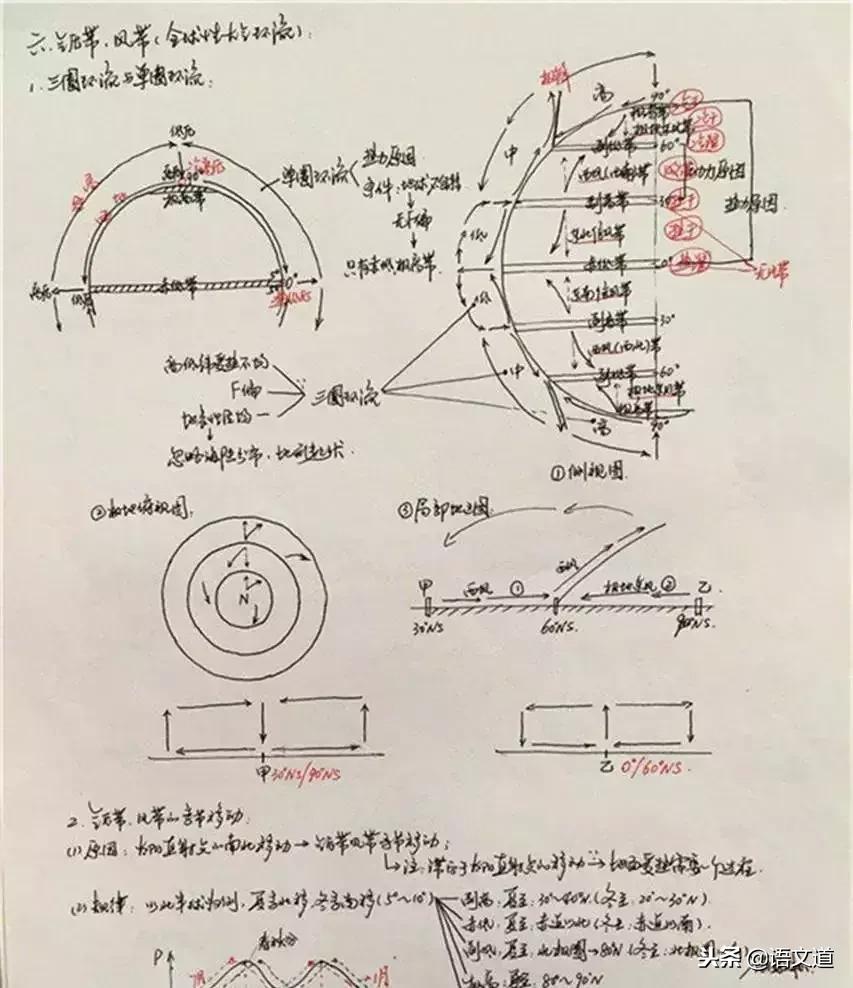 六、气压带、风带(全球性大气环流):
1. 三圈环流与单圈环流:
低压
90°
极高带
高压
低压
赤低带
0°
单圈环流
热力原因
条件:地球不自转
无F偏
只有赤低极高带
高低纬受热不均
F偏
地表性质均一
三圈环流
忽略海陆分布、地形起伏
极锋
高
中
低
低
中
高
90°
极高带
极地东北风带
副低带
60°
西风(西南)带
动力原因
副高带
30°
热力原因
东北信风带
赤低带
0°
无此带
东南信风带
副高带
30°
西风(西北)带
副低带
60°
极地东风带
极高带
90°
冷干
冷湿
热干
热湿
①侧视图
②极地俯视图
N
③局部地区图
甲
西风
①
西风
极地东风
②
乙
30°NS
60°NS
90°NS
甲 30°NS/90°NS
乙 0°/60°NS
2. 气压带、风带的季节移动:
(1) 原因:太阳直射点的南北移动→气压带风带季节移动;
注:滞后于太阳直射点的移动
地面受热需要一个过程
(2) 规律:以北半球为例,夏季北移,冬季南移(5°~10°)
副高:夏至:30°~40°N (冬至:20°~30°N)
赤低:夏至:赤道以北(冬至:赤道以南)
副低:夏至:北极圈→80°N (冬至:北极圈
极高:夏至:80°~90°N
P
春秋分
7月
1月
头条 @语文道